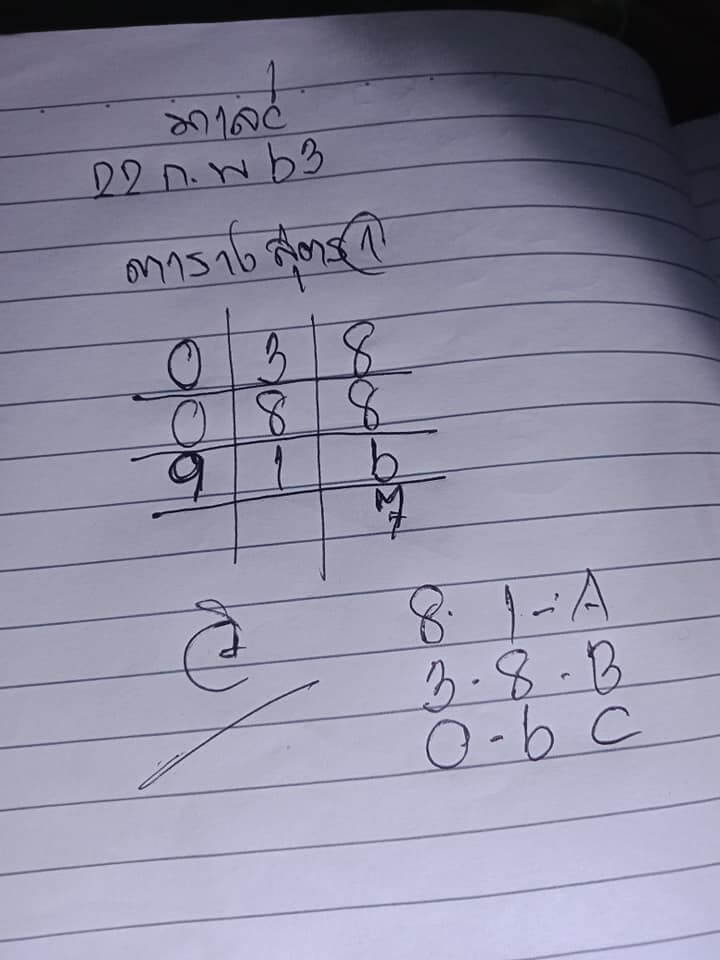 มาเลย์
22 ก.พ 63
ตาราง สูตร 1
0 3 8
0 8 8
9 1 6
8. 1 - A
3 . 8 . B
0 - 6 C